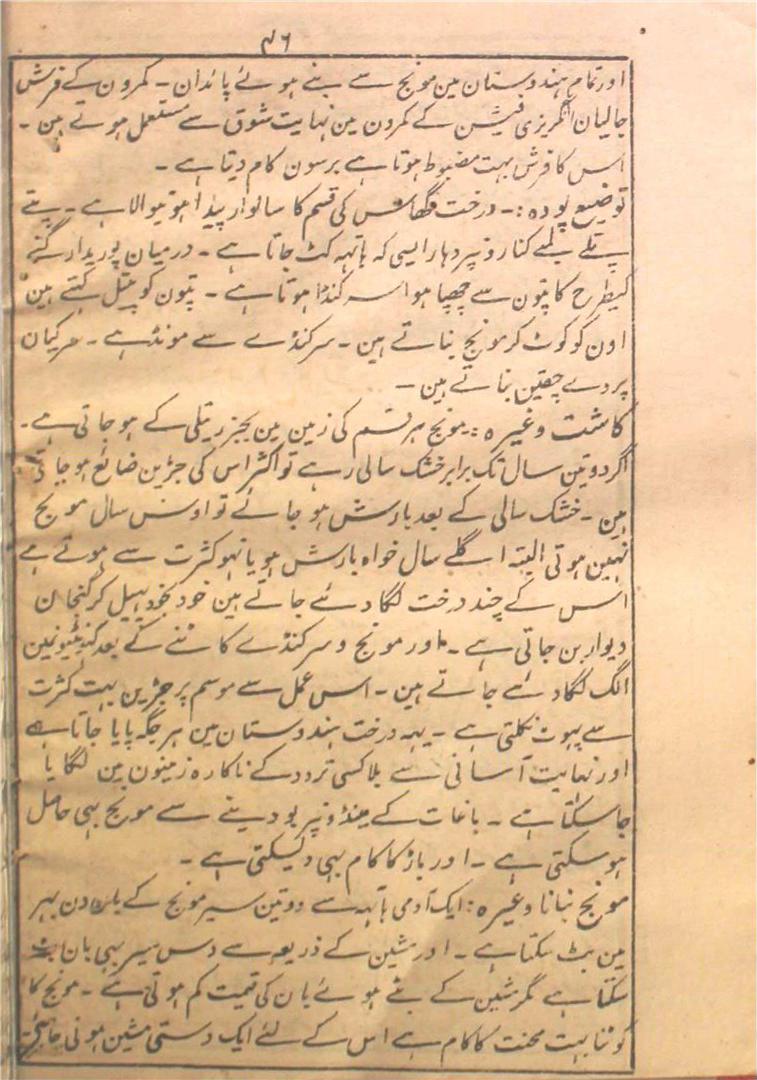 ۴۶
اور تمام ہندوستان مین مونج سے بنے ہوئے پائدان۔ کمرون کے فرش
جالیان انگریزی فیشن کے کمرون مین نہایت شوق سے مستعمل ہوتے ہین۔
اس کا فرش بہت مضبوط ہوتا ہے برسون کام دیتا ہے۔
توضیح پودہ:۔ درخت گھاس کی قسم کا سالوار پیدا ہونیوالا ہے۔ پتے
پتلے لمبے کنارونپر دہار ایسی کہ ہاتہہ کٹ جاتا ہے۔ درمیان پوریدار گنے
کیطرح کا پتون سے چھپا ہوا سرکنڈا ہوتا ہے۔ پتون کو پتل کہتے ہین
اون کو کوٹ کر مونج بناتے ہین۔ سرکنڈے سے مونڈہے۔ سرکیان
پردے چقین بناتے ہین۔
کاشت وغیرہ:۔ مونج ہر قسم کی زمین مین بجز ریتلی کے ہو جاتی ہے۔
اگر دو تین سال تک برابر خشک سالی رہے تو اکثر اس کی جڑین ضائع ہو جاتی
ہین۔ خشک سالی کے بعد بارش ہو جائے تو اوس سال مونج
نہین ہوتی البتہ اگلے سال خواہ بارش ہو یا نہو کثرت سے ہوتی ہے
اس کے چند درخت لگا دئے جاتے ہین خود بخود پہیل کر گنجان
دیوار بن جاتی ہے۔ اور مونج و سرکنڈے کاٹنے کے بعد
الگ لگا دئے جاتے ہین۔ اس عمل سے موسم پر جڑین بہت کثرت
سے پہوٹ نکلتی ہے۔ یہہ درخت ہندوستان مین ہر جگہ پایا جاتا ہے
اور نہایت آسانی سے بلا کسی تردد کے ناکارہ زمینون مین لگایا
جا سکتا ہے۔ باغات کے مینڈونپر بو دینے سے مونج بہی حاصل
ہو سکتی ہے۔ اور باڑ کا کام بہی دیسکتی ہے۔
مونج بنانا وغیرہ: ایک آدمی ہاتہہ سے دو تین سیر مونج کے بان دن بہر
مین بٹ سکتا ہے۔ اور مشین کے ذریعہ سے دس سیر بہی بان بٹ
سکتا ہے مگر مشین کے بٹے ہوئے بان کی قیمت کم ہوتی ہے۔ مونج کا
کوٹنا بہت محنت کا کام ہے اس کے لئے ایک دستی مشین ہونی چاہئے۔